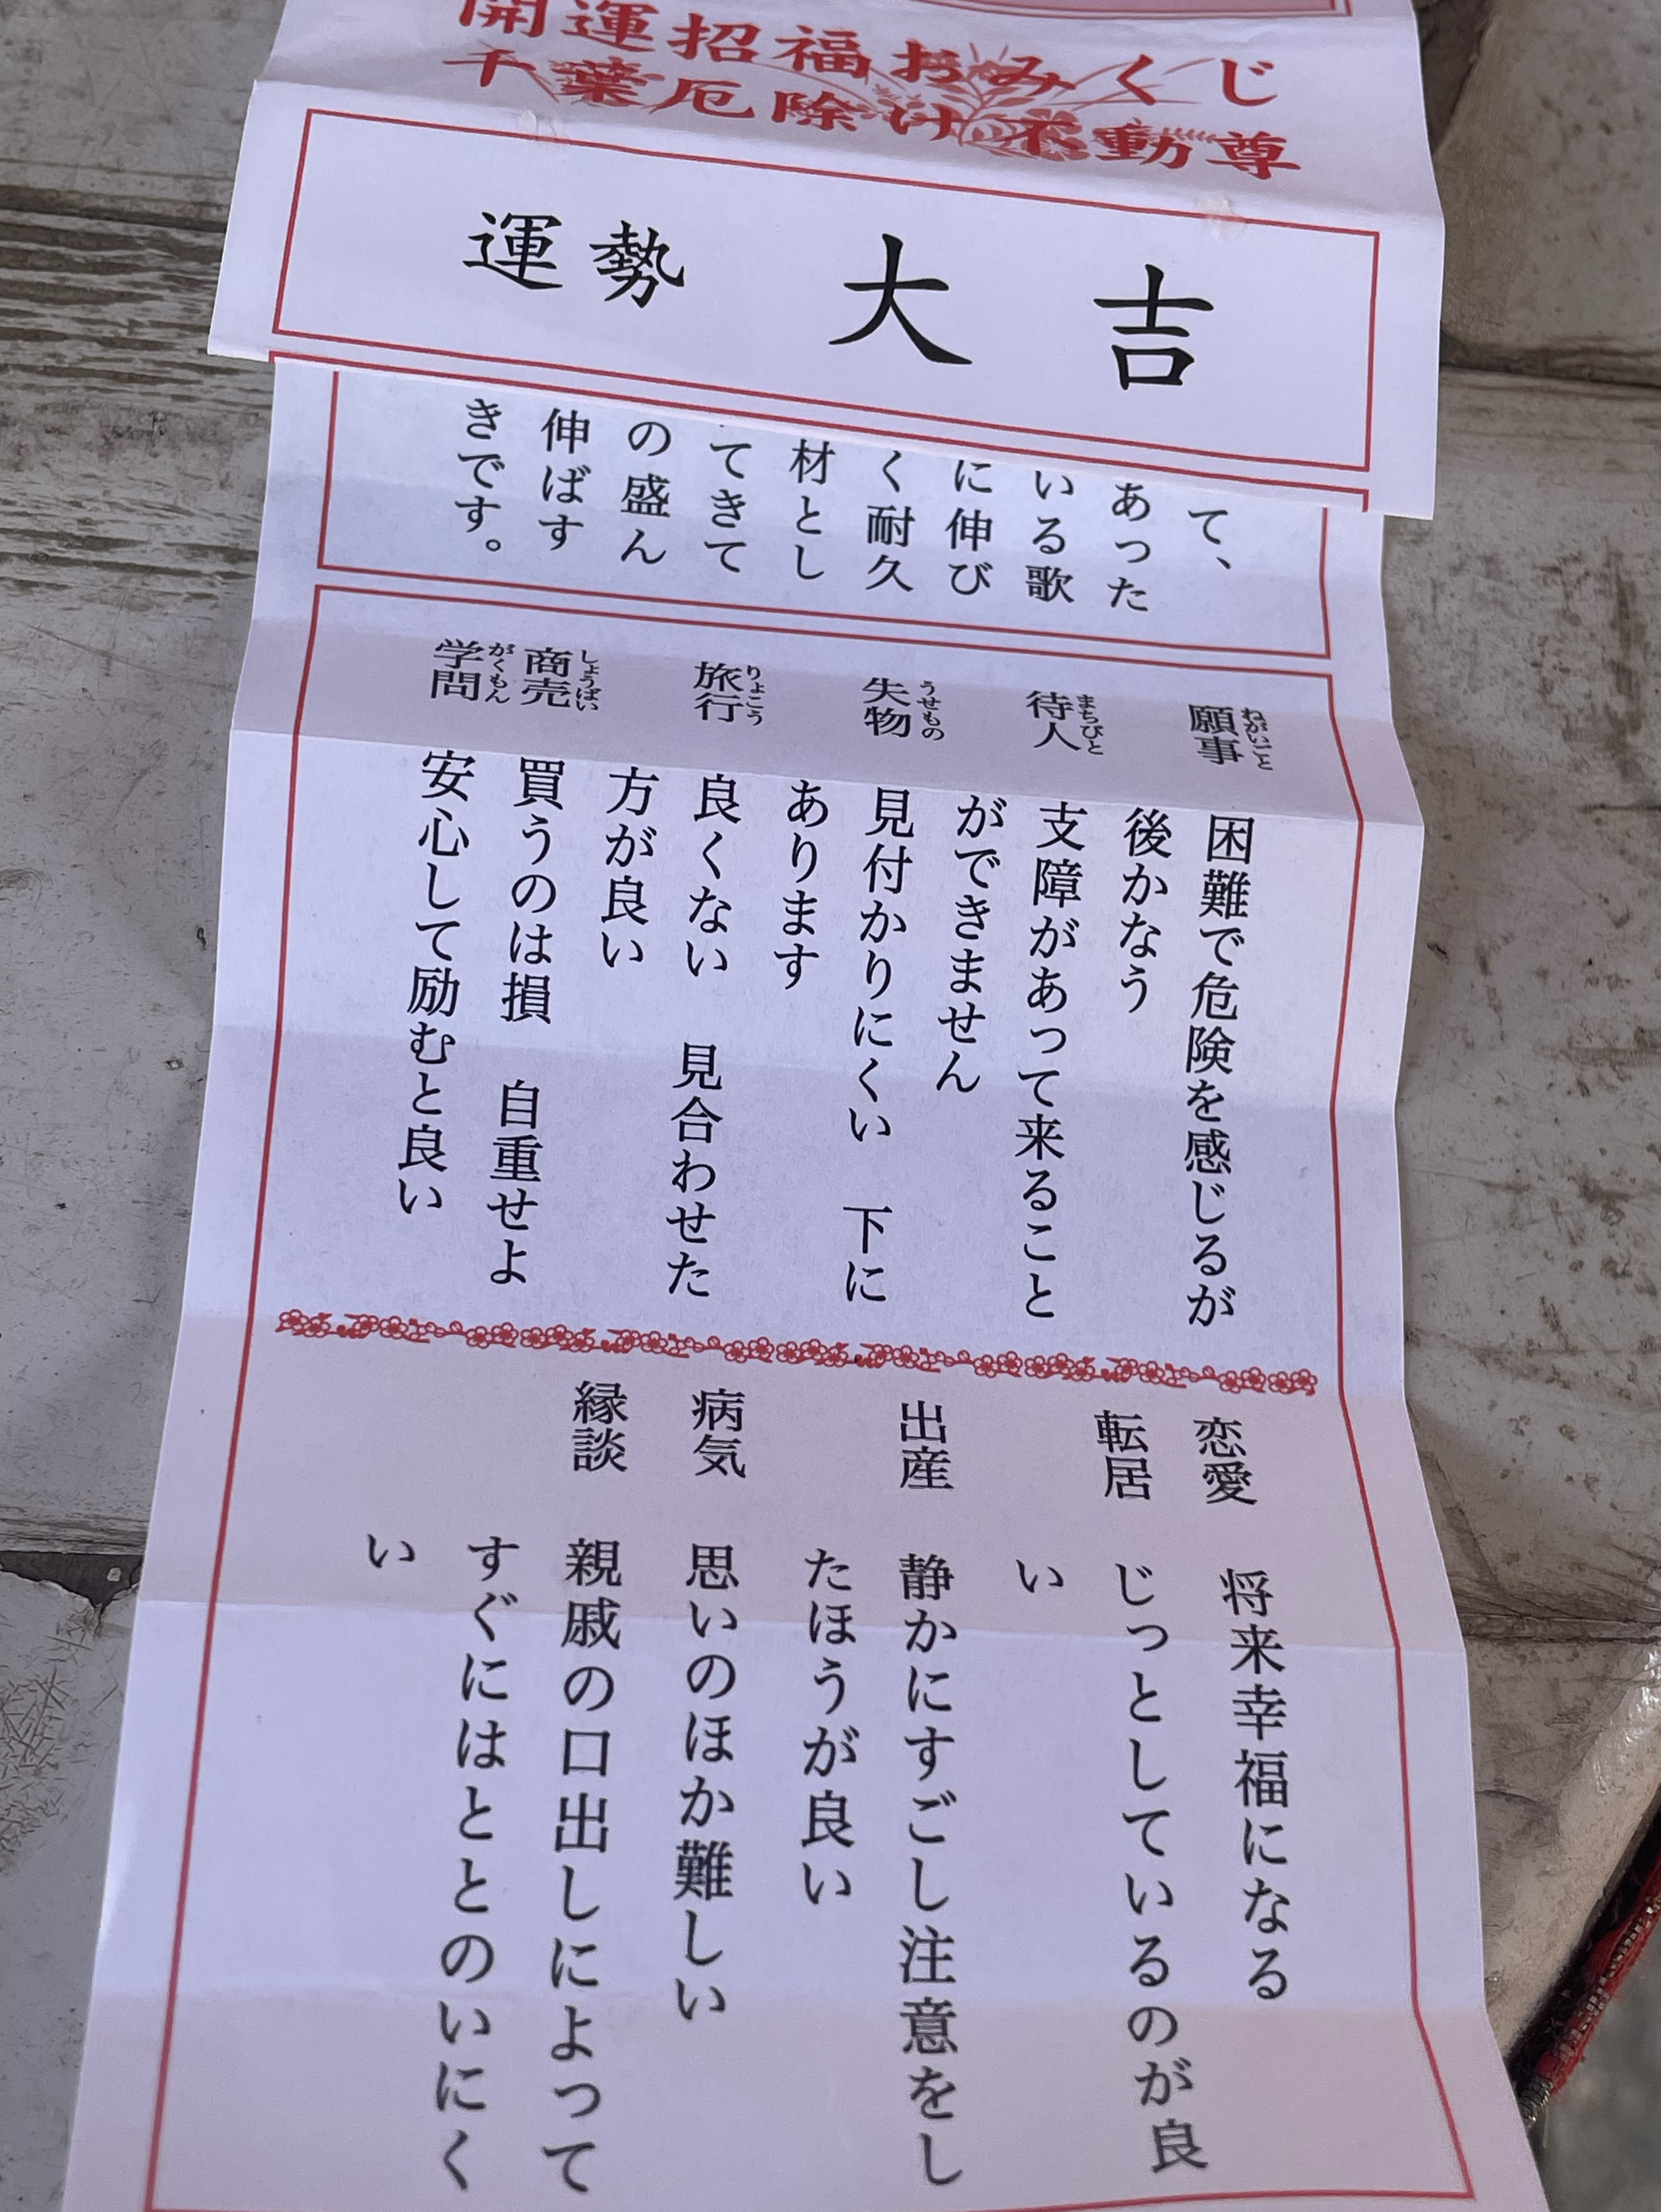 開運招福おみくじ
千葉厄除け不動尊
運勢 大吉
て、
あった
いる歌
に伸び
く耐久
材とし
てきて
の盛ん
伸ばす
きです。
願事 ねがいごと 困難で危険を感じるが
後かなう
待人 まちびと 支障があって来ること
ができません
失物 うせもの 見付かりにくい 下に
あります
旅行 りょこう 良くない 見合わせた
方が良い
商売 しょうばい 買うのは損 自重せよ
学問 がくもん 安心して励むと良い
恋愛 将来幸福になる
転居 じっとしているのが良
い
出産 静かにすごし注意をし
たほうが良い
病気 思いのほか難しい
縁談 親戚の口出しによって
すぐにはととのいにく
い